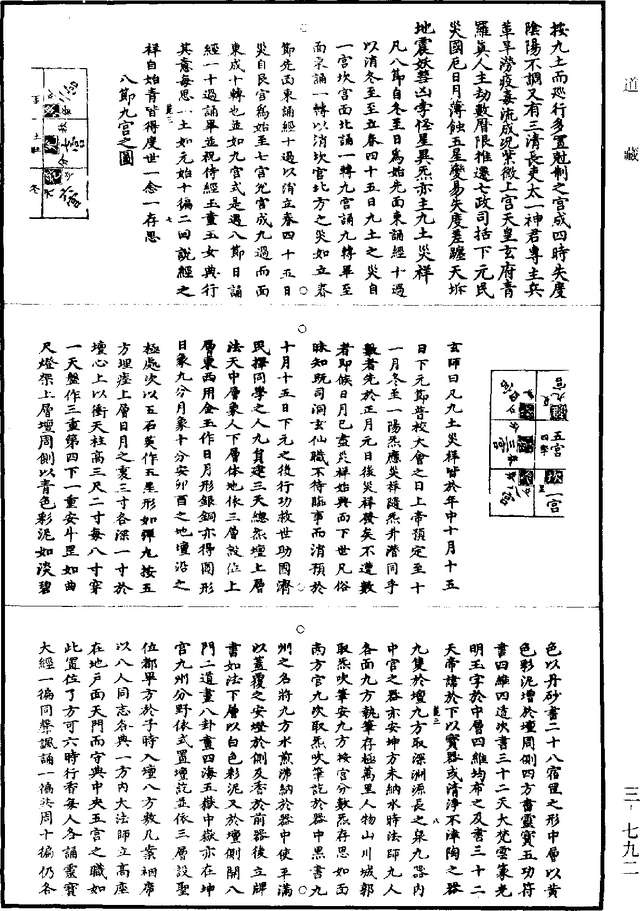 道藏
三-七九二
按九土而巡行多置尅制之宮成四時失度
陰陽不調又有三清長吏太一神君專主兵
革旱澇疫毒流成況紫微上宮天皇玄府青
羅真人主劫數曆限推遷七政司括下元民
災國厄日月薄蝕五星變易失度差躔天坼
地震妖彗凶孛怪星異炁亦主九土災祥
凡八節自冬至日為始先面東誦經十過
以消冬至至立春四十五日九土之災自
一宮坎宮面北誦一轉九宮誦九轉畢至
而東誦一轉以消坎宮北方之災如立春
節先面東誦經十過以消立春四十五日
災自艮宮為始至七宮兊宮成九過而面
東成十轉也並如九宮式是遇八節日誦
經一十過誦畢並祝侍經玉童玉女典行
其意每思一土如元始十徧二回說經之
祥自始青皆得度世一念一存思
八節九宮之圖
九宮
五宮
一宮
坎
玄師曰凡九土災祥皆於年中十月十五
日下元節普校大會之日上帝預定至十
一月冬至一陽炁應災祥隨炁升潛同乎
數者先於正月元日後災祥發矣不遭數
者即候日月已盡災祥始興而下世凡俗
昧知既司洞玄仙職不待臨事而消預於
十月十五日下元之後行功救世助國濟
民擇同學之人九負建三天總炁壇上層
法天中層象人下層體地依三層設位上
層東西用金玉作日月形銀銅亦得圓形
日象九分月象十分安卯酉之地壇沿之
極處次以五石英作五星形如彈丸按五
方埋座上層日月之裏三寸各深一寸於
壇心上以衝天柱高三尺二寸每八寸穿
一天盤作三重第四下一重安斗罡如曲
尺燈架上層壇周側以青色彩泥如淡碧
色以丹砂書二十八宿罡之形中層以黃
色彩泥增於壇周側四方書靈寶五功符
書四維四造次書三十二天大梵雲篆光
明玉字於中層四維均布之及書三十二
天帝諱於下以寶器或清淨不津陶之器
九隻於壇九方取深淵源長之泉九器內
中宮之器亦安坤方未納水時法師九人
各面九方執筆存極萬里人物山川城郭
取炁吹筆安九方按宮分數炁存思如面
南方官九次取炁吹筆訖於器中墨書九
州之名將九方水煎沸納於器中使平滿
以蓋覆之安燈於側及香於前器後立牌
書如法下層以白色彩泥又於壇側開八
門二道畫八卦畫四海五嶽中嶽亦在坤
宮九州分野依式置壇訖並依三層設聖
位都畢方於子時入壇八方敷几案裀席
以八人同志各典一方內大法師立高座
在地戶面天門而守典中央五宮之職如
此置位了方可六時行香每人各誦靈寶
大經一徧同聲諷誦一徧共周十徧仍各